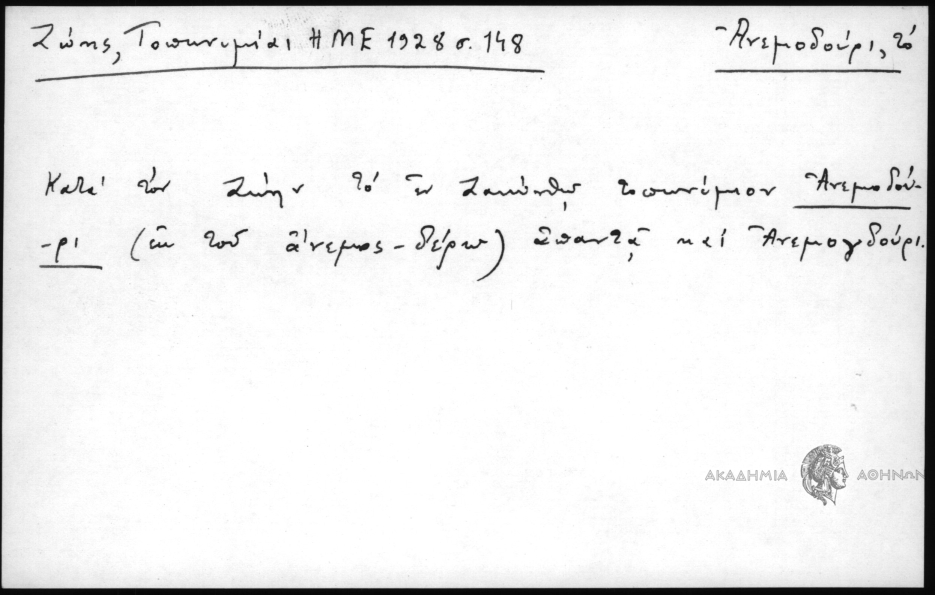 Ζώης, Τοπωνυμίαι ΗΜΕ 1928 σ. 148
Ἀνεμοδούρι, τό
Κατά τόν Ζώην τό ἐν Ζακύνθῳ τοπωνύμιον Ἀνεμοδού-
-ρι (ἐκ τοῦ ἄνεμος - δέρω) ἀπαντᾷ καί Ἀνεμογδούρι.
ΑΚΑΔΗΜΙΑ ΑΘΗΝΩΝ